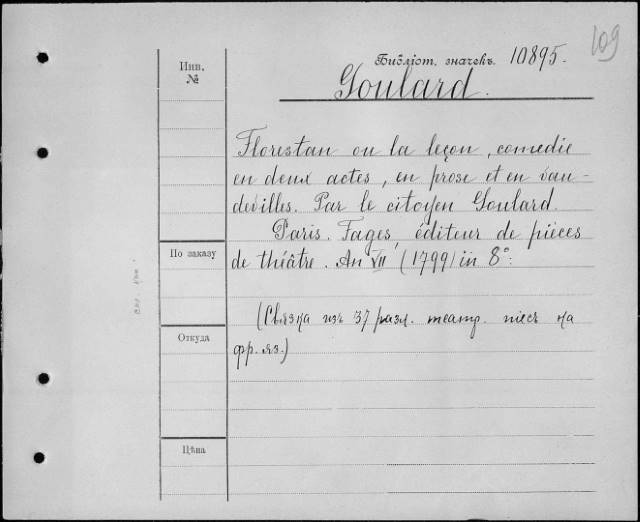 109
Библіот. значекъ. 10895.
Goulard.
Инв.
№
Florestan ou la leçon, comedie
en deux actes, en prose et en vau-
devilles. Par le citoyen Goulard.
Paris. Fages, éditeur de pièces
de théâtre. An VII (1799) in 8°.
По заказу
(Связка изъ 37 разл. театр. пiесъ на
фр. яз.)
Откуда
Цѣна